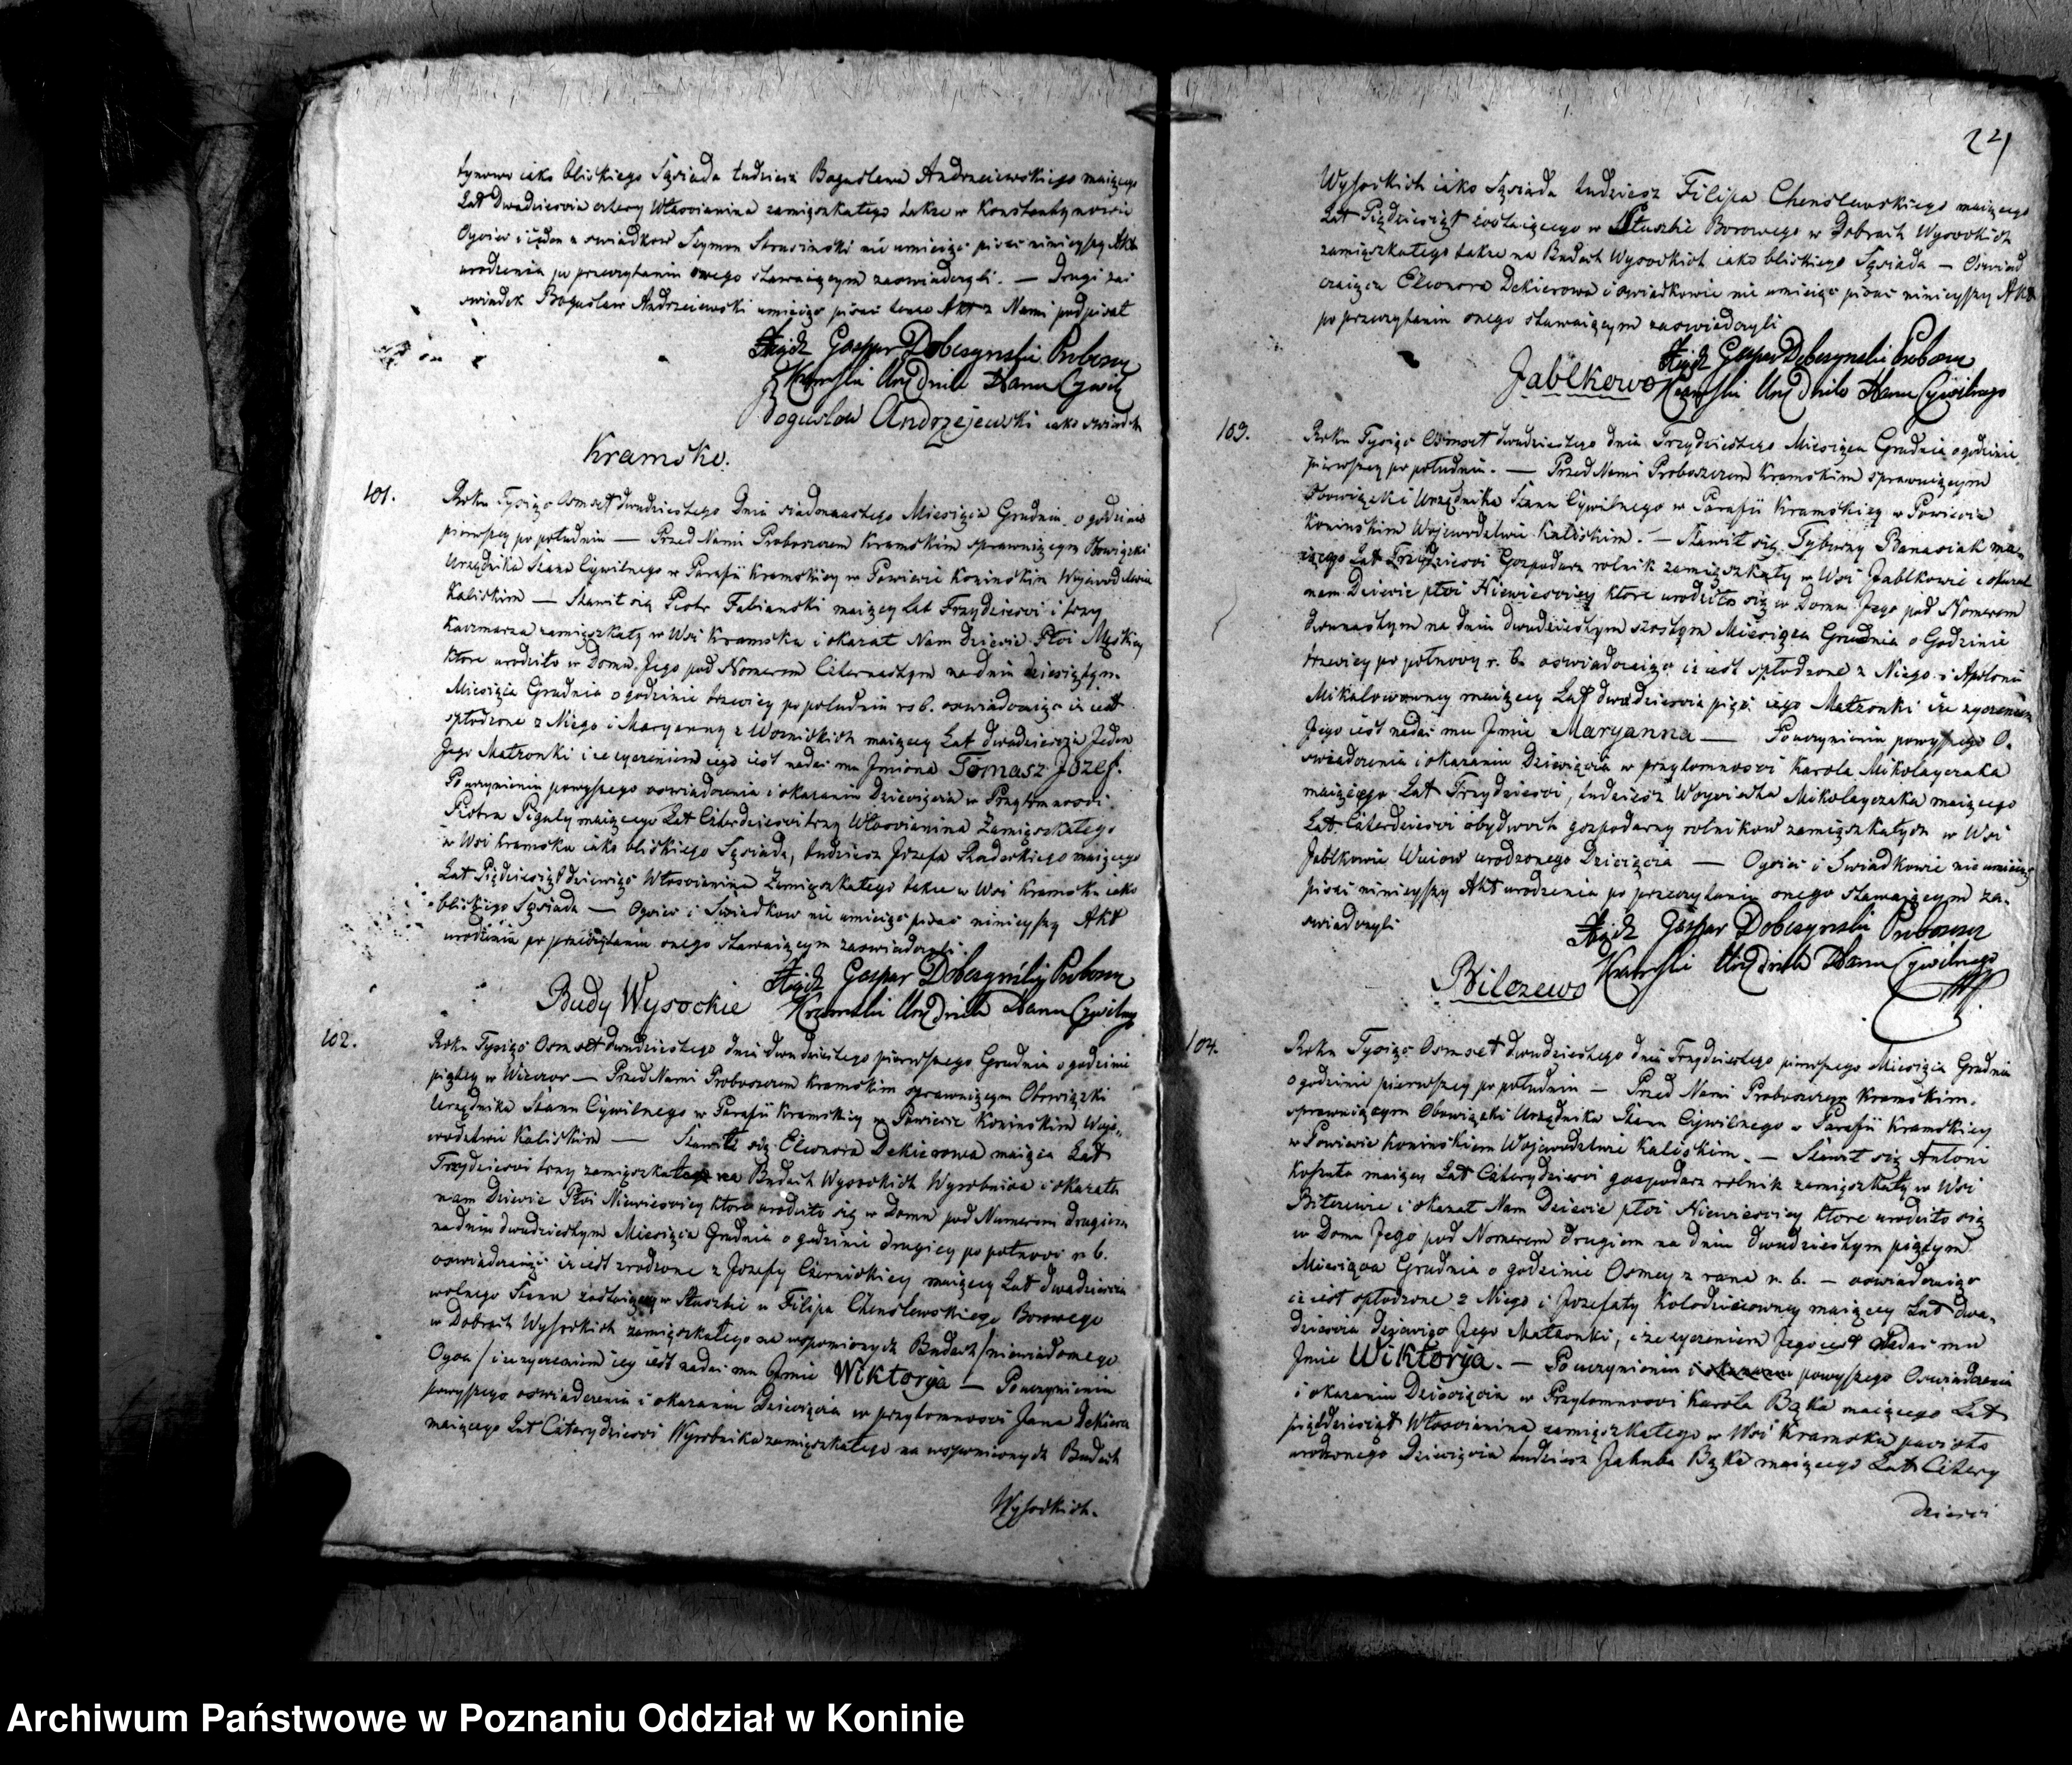 tynowo iako bliskiego Sąsiada tudziesz Bogusława Andrzeiewskiego maiącego
Lat Dwadzieścia cztery Włościanina zamięszkałego także w Konstantynowie
Oyciec i ieden z swiadkow Szymon nie umieiąc pisac ninieyszy Akt
urodzenia po przeczytaniu onego stawaiącym zaswiadczyli. — Drugi zas
swiadek Bogusław Andrzeiewski umieiąc pisac tenze Akt z Nami podpisał
Xiądz Gaspar Dobczynski Proboszcz
Kramski Urzędnik Stanu Cywil
Bogusław Andrzejewski iako swiadek
Kramsko.
101.
Roku Tysiąc Osmset dwudziestego Dnia siadomnastego Miesiąca Grudnia o godzinie
pierwszey po południu — Przed Nami Proboszczem Kramskim sprawuiącym Obowiązki
Urzędnika Stanu Cywilnego w Parafii Kramskiey w Powiecie Konińskim Wojewodztwie
Kaliskim — Stawił się Piotr Fabianski maiący Lat Trzydziesci i trzy
Kaczmarz zamięszkały w Wsi Kramsku i okazał Nam dziecie Płci Męskiey
ktore urodziło w Domu Jego pod Nomerem Czternastym na dniu dziesiątym
Miesiąca Grudnia o godzinie trzeciey po południu r. b. oswiadczaiąc iż iest
spłodzone z Niego i Maryanny z Woznickich maiącey Lat dwadziescia Jeden
Jego Małżonki i że życzeniem iego iest nadać mu Jmiona Tomasz Józef.
Po uczynieniu powyszego oswiadczenia i okazaniu Dziecięcia w Przytomnosci
Piotra Piguły maiącego Lat Czterdziesci trzy Włoscianina Zamięszkałego
w Wsi Kramsku iako bliskiego Sąsiada, tudziesz Józefa maiącego
Lat Pięćdziesiąt dziewięć Włoscianina Zamięszkałego także w Wsi Kramsku iako
bliskiego Sąsiada — Oyciec i Swiadkow nie umieiąc pisac ninieyszy Akt
urodzenia po przeczytaniu onego stawaiącym zaswiadczyli.
Xiądz Gaspar Dobczynski Proboszcz
Budy Wysockie Kramski Urzędnik Stanu Cywilny
102.
Roku Tysiąc Osmset dwudziestego dnia dwudziestego pierwszego Grudnia o godzinie
piątey w Wieczor — Przed Nami Proboszczem Kramskim sprawuiącym Obowiązki
Urzędnika Stanu Cywilnego w Parafii Kramskiey w Powiecie Konińskim Woje-
wodztwie Kaliskim — Stawiła się Eleonora Dekierowa maiąca Lat
Trzydziesci trzy zamięszkała na Budach Wysockich Wyrobnica i okazała
nam Dziecie Płci Niewiesciey ktore urodziło się w Domu pod Numerem drugim
na dniu dwudziestym Miesiąca Grudnia o godzinie drugiey po połnocy r. b.
oswiadczaiąc iż iest zrodzone z Jozefy Czernickiey maiącey Lat dwadziescia
wolnego Stanu zostaiącey w Służbie u Filipa Chensławskiego Borowego
w Dobrach Wysockich zamięszkałego na wspomionych Budach / niewiadomego
Oyca / i że życzeniem iey iest nadac mu Jmie Wiktorya — Po uczynieniu
powyszego oswiadczenia i okazaniu Dziecięcia w przytomnosci Jana Dekiera
maiącego Lat Czterydziesci Wyrobnika zamięszkałego na wspomnionych Budach
Wysockich.
24
Wysockich iako Sąsiada tudziesz Filipa Chensławskiego maiącego
Lat Pięćdziesiąt zostaiącego w Służbie Borowego w Dobrach Wysockich
zamięszkałego także na Budach Wysockich iako bliskiego Sąsiada — Oswiad
czaiąca Eleonora Dekierowa i swiadkowie nie umieiąc pisac ninieyszy Akt
po przeczytaniu onego stawaiącym zaswiadczyli
Xiądz Gaspar Dobczynski Proboszcz
Jabłkowo Kramski Urzędnik Stanu Cywilnego
103.
Roku Tysiąc Osmset dwudziestego dnia Trzydziestego Miesiąca Grudnia o godzinie
pierwszey po południu. — Przed Nami Proboszczem Kramskim sprawuiącym
Obowiązki Urzędnika Stanu Cywilnego w Parafii Kramskiey w Powiecie
Konińskim Wojewodztwie Kaliskim. — Stawił się Tyburcy Banasiak ma-
iącego Lat Trzydziesci Gospodarz rolnik zamięszkały w Wsi Jabłkowie i okazał
nam Dziecie płci Niewiesciey ktore urodziło się w Domu Jego pod Nomerem
dwunastym na dniu dwudziestym szostym Miesiąca Grudnia o Godzinie
trzeciey po połnocy r. b. oswiadczaiąc iż iest spłodzone z Niego i Apolonii
Mikołaiowowney maiącey Lat dwadziescia pięć iego Małżonki i że życzeniem
Jego iest nadac mu Jmie Maryanna — Po uczynieniu powyszego O-
swiadczenia i okazaniu Dziecięcia w przytomnosci Karola Mikołayczaka
maiącego Lat Trzydziesci, tudziesz Woyciecha Mikołayczaka maiącego
Lat Czterdziesci obydwoch gospodarzy rolnikow zamięszkałych w Wsi
Jabłkowie Wuiow urodzonego Dziecięcia — Oyciec i Swiadkowie nie umieiąc
pisac ninieyszy Akt urodzenia po przeczytaniu onego stawaiącym za-
swiadczyli
Xiądz Gaspar Dobczynski Proboszcz
Bilczewo Kramski Urzędnik Stanu Cywilnego
104.
Roku Tysiąc Osmset dwudziestego dnia Trzydziestego pierwszego Miesiąca Grudnia
o godzinie pierwszey po południu — Przed Nami Proboszczem Kramskim
sprawuiącym Obowiązki Urzędnika Stanu Cywilnego w Parafii Kramskiey
w Powiecie Konińskim Wojewodztwie Kaliskim. — Stawił się Antoni
maiący Lat Czterydziesci gospodarz rolnik zamięszkały w Wsi
Bilczewie i okazał Nam Dziecie płci Niewiesciey ktore urodziło się
w Domu Jego pod Nomerem drugim na dniu dwudziestym piątym
Miesiąca Grudnia o godzinie Osmey z rana r. b. — oswiadczaiąc
iż iest spłodzone z Niego i Jozefaty Kołodzieiowney maiącey Lat dwa-
dziescia dziewięć Jego Małżonki, i że życzeniem Jego iest Nadac mu
Jmie Wiktorya. — Po uczynieniu powyszego Oswiadczenia
i okazaniu Dziecięcia w Przytomnosci Karola Bąka maiącego Lat
pięćdziesiąt Włoscianina zamięszkałego w Wsi Kramsku
urodzonego Dziecięcia tudziesz Jakuba Bąka maiącego Lat Cztery
dziesci
Archiwum Państwowe w Poznaniu Oddział w Koninie